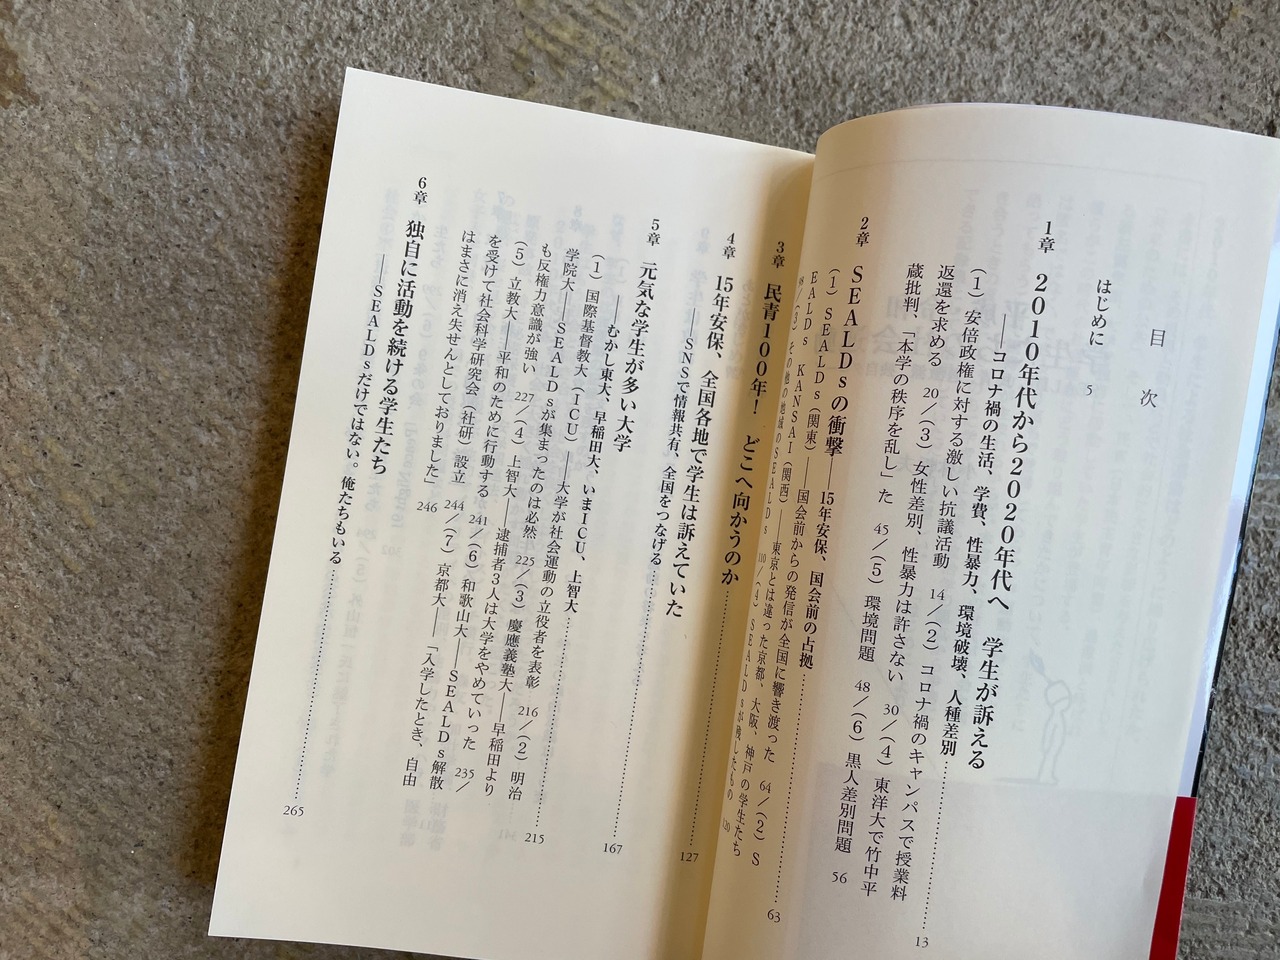 目　次
はじめに　5
1章　2010年代から2020年代へ　学生が訴える
――コロナ禍の生活、学費、性暴力、環境破壊、人種差別………13
（1）安倍政権に対する激しい抗議活動　14／（2）コロナ禍のキャンパスで授業料
返還を求める　20／（3）女性差別、性暴力は許さない　30／（4）東洋大で竹中平
蔵批判、「本学の秩序を乱し」た　45／（5）環境問題　48／（6）黒人差別問題　56
2章　SEALDsの衝撃――15年安保、国会前の占拠………63
（1）SEALDs（関東）――国会前からの発信が全国に響き渡った　64／（2）S
EALDs KANSAI（関西）――東京とは違った京都、大阪、神戸の学生たち
98／（3）その他の地域のSEALDs　110／（4）SEALDsが残したもの　120
3章　民青100年！　どこへ向かうのか………127
4章　15年安保、全国各地で学生は訴えていた
――SNSで情報共有、全国をつなげる………167
5章　元気な学生が多い大学
――むかし東大、早稲田大、いまICU、上智大………215
（1）国際基督教大（ICU）――大学が社会運動の立役者を表彰　216／（2）明治
学院大――SEALDsが集まったのは必然　225／（3）慶應義塾大――早稲田より
も反権力意識が強い　227／（4）上智大――逮捕者3人は大学をやめていった　235／
（5）立教大――平和のために行動する　241／（6）和歌山大――SEALDs解散
を受けて社会科学研究会（社研）設立　244／（7）京都大――「入学したとき、自由
はまさに消え失せんとしておりました」　246
6章　独自に活動を続ける学生たち
――SEALDsだけではない。俺たちもいる………265